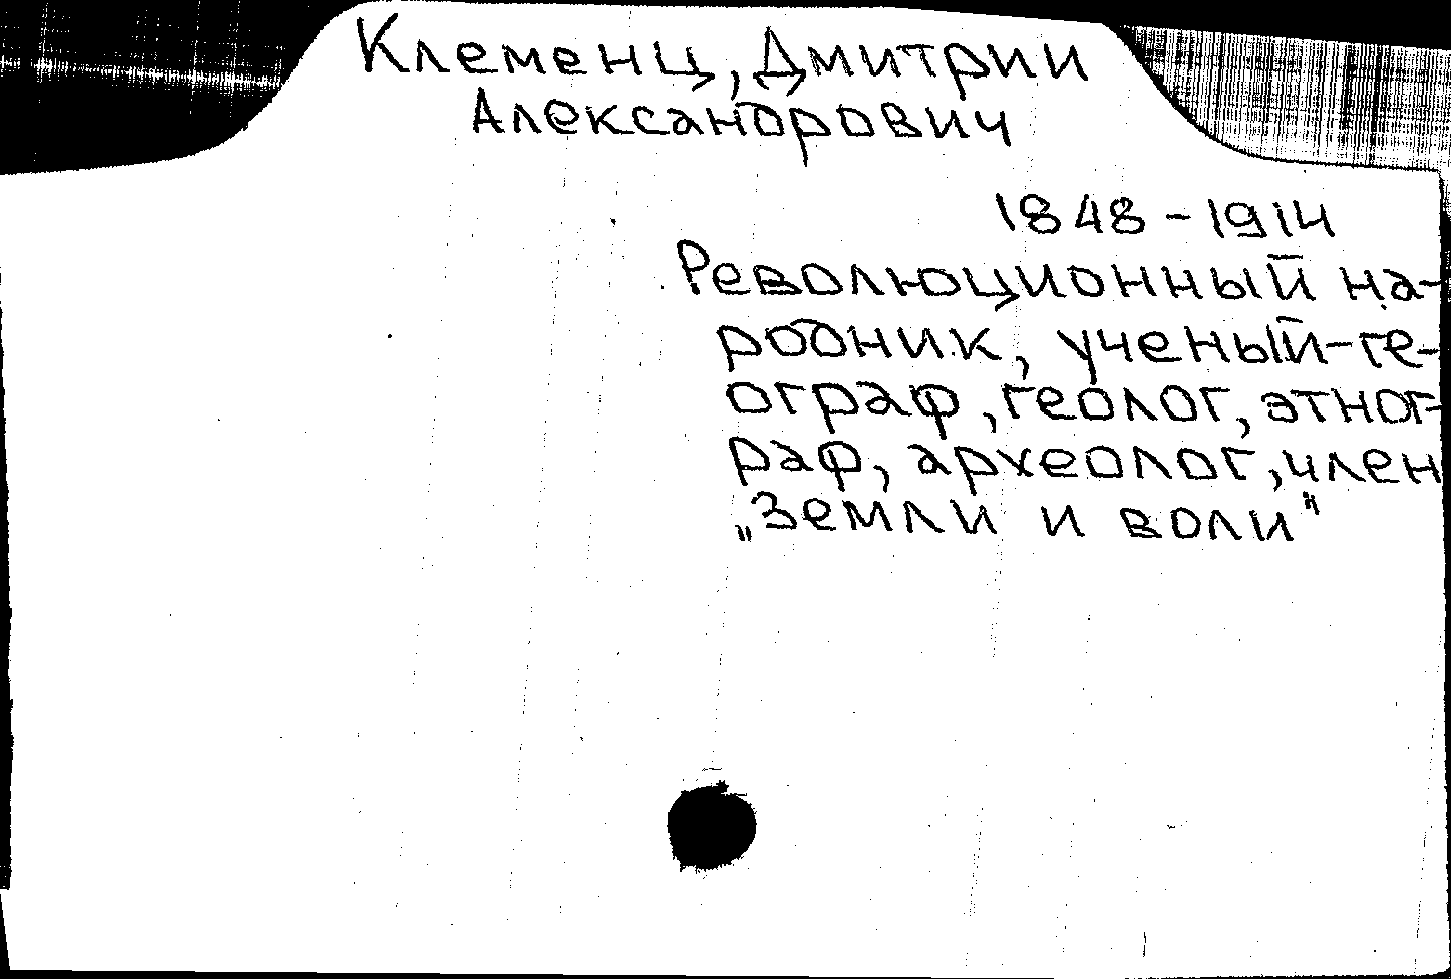 Клеменц, Дмитрии
Александрович
1848-1914
Революционный на-
родник, ученый-ге-
ограф, геолог, этног-
раф, археолог, член
„Земли и воли"